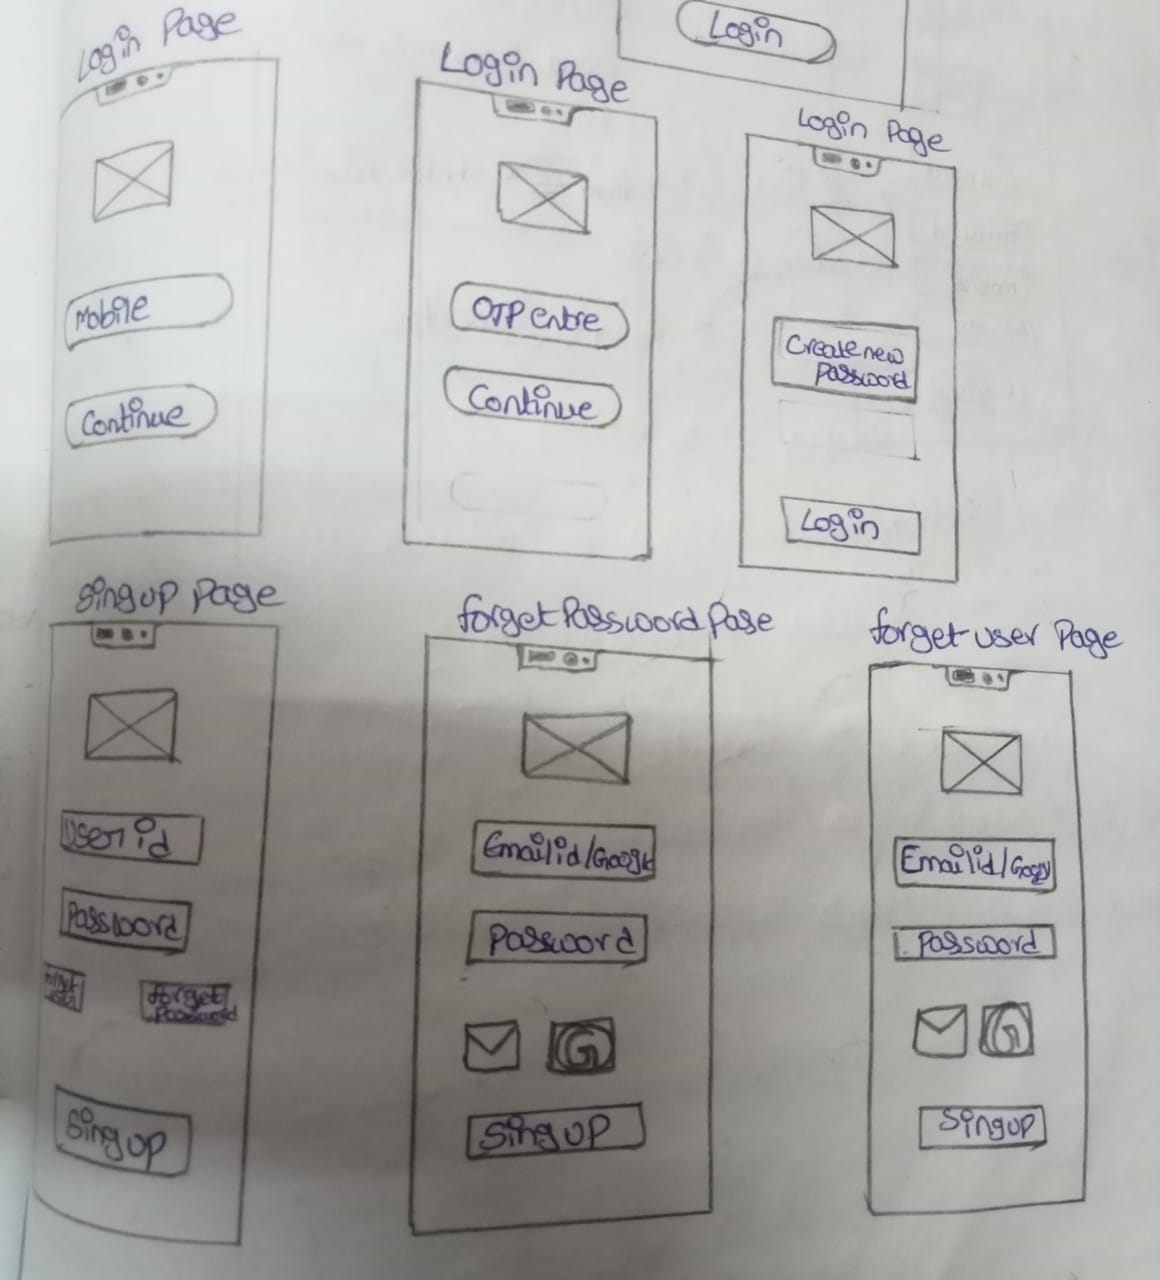 Login
Login Page
Mobile
Continue
Login Page
OTP entre
Continue
Login Page
Create new
Password
Login
Singup Page
User id
Password
forget
forget
Password
Singup
forget Password Page
Email id/Google
Password
G
Singup
forget user Page
Email id/Googl
Password
G
Singup